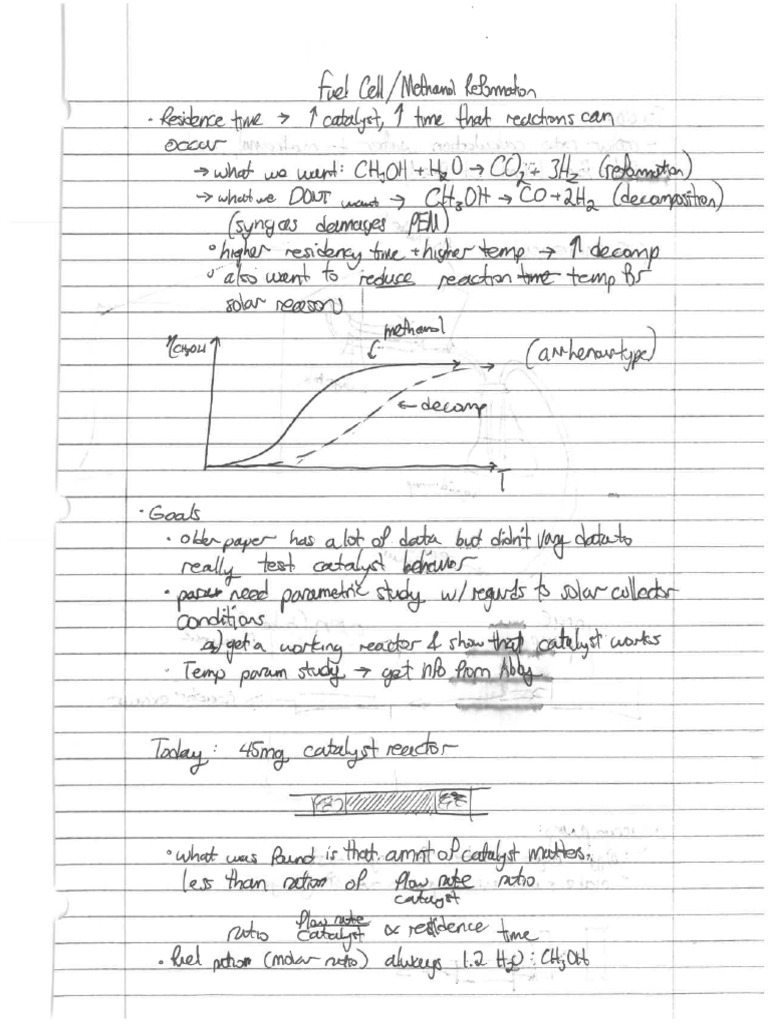 Fuel Cell/Methanol Reformation
· Residence time → ↑ catalyst, ↑ time that reactions can
occur
→ what we want: CH₃OH + H₂O → CO₂ + 3H₂ (reformation)
→ what we DONT want → CH₃OH → CO + 2H₂ (decomposition)
(syngas damages PEM)
° higher residency time + higher temp → ↑ decomp
° also want to reduce reaction time temp for
solar reason
methanol
ηCH₃OH
(arrhenius type)
← decomp
T
· Goals
· older paper has a lot of data but didn't vary data to
really test catalyst behavior
· paper need parametric study w/ regards to solar collector
conditions
a) get a working reactor & show that catalyst works
· Temp param study → get info from Abby
Today: 45mg catalyst reactor
· what was found is that amnt of catalyst matters
less than ration of flow rate ratio
catalyst
ratio flow rate ∝ residence time
catalyst
· fuel (molar ratio) always 1.2 H₂O : CH₃OH